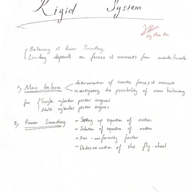 Rigid System
Balancing & Power Smoothing
depends on forces & moments from
1) Mass balance - determination of inertia forces & moments
- investigating the possibility of mass balancing
for { Single cylinder piston engines
Multi cylinder piston engines
2) Power Smoothing - Setting up equation of motion
- Solution of equation of motion
- Non-uniformity factor
- Determination of the fly-wheel